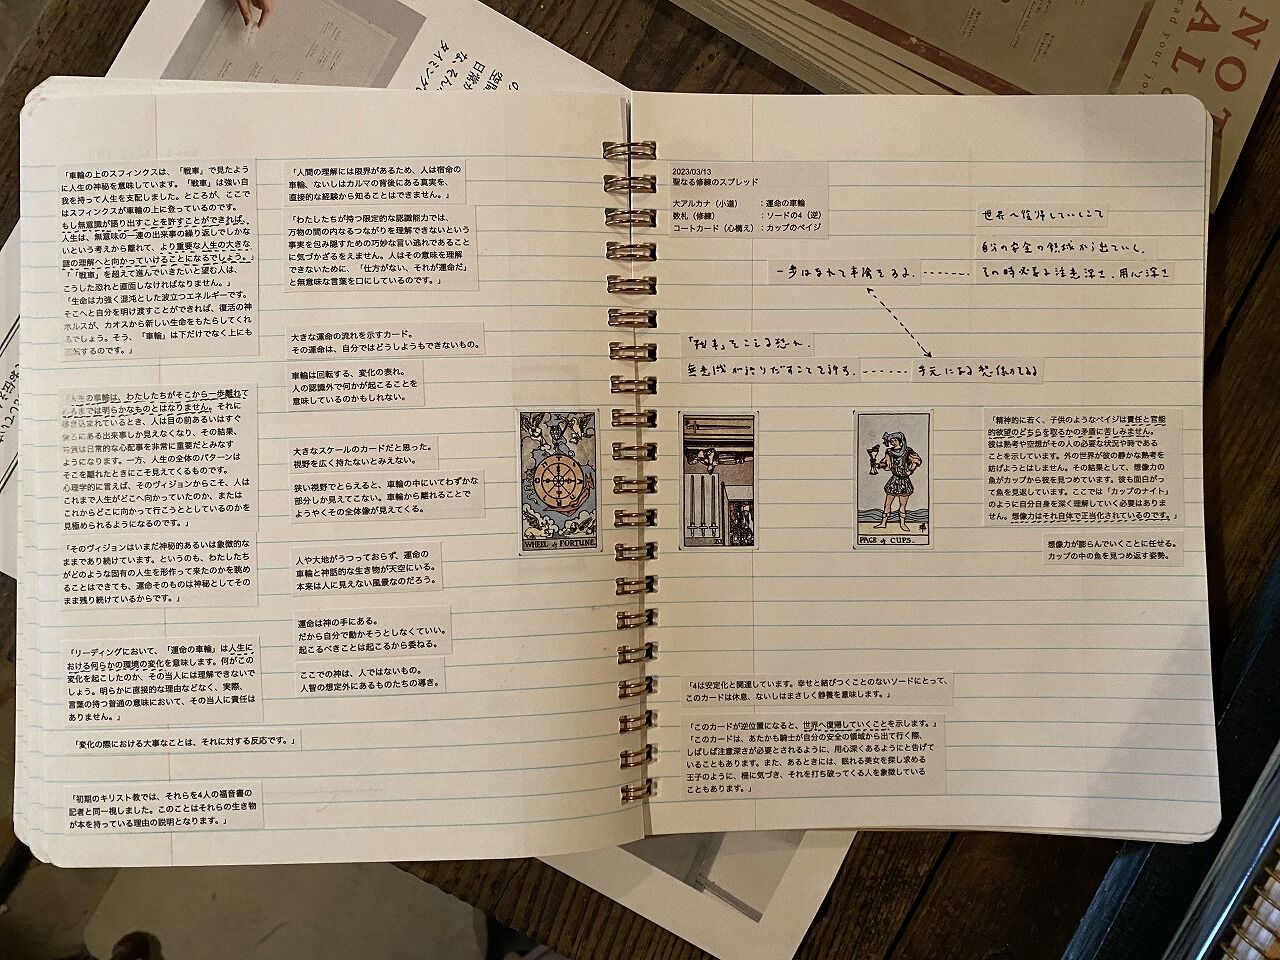 「車輪の上のスフィンクスは、「戦車」で見たよう
に人生の神秘を意味しています。「戦車」は強い自
我を持って人生を支配しました。ところが、ここで
はスフィンクスが車輪の上に登っているのです。
もし無意識が語り出すことを許すことができれば、
人生は、無意味の一連の出来事の繰り返しでしかな
いという考えから離れて、より重要な人生の大きな
謎の理解へと向かっていけることになるでしょう。」
「「戦車」を超えて進んでいきたいと望む人は、
こうした恐れと直面しなければなりません。」
「生命は力強く混沌とした波立つエネルギーです。
そこへと自分を明け渡すことができれば、復活の神
ホルスが、カオスから新しい生命をもたらしてくれ
るでしょう。そう、「車輪」は下だけでなく上にも
するのです。」
「人生の車輪は、わたしたちがそこから一歩離れて
みるまでは明らかなものとはなりません。それに
巻き込まれているとき、人は目の前あるいはすぐ
後ろにある出来事しか見えなくなり、その結果、
は日常的な心配事を非常に重要だとみなす
ようになります。一方、人生の全体のパターンは
そこを離れたときにこそ見えてくるものです。
心理学的に言えば、そのヴィジョンからこそ、人は
これまで人生がどこへ向かっていたのか、または
これからどこに向かって行こうとしているのかを
見極められるようになるのです。」
「そのヴィジョンはいまだ神秘的あるいは象徴的な
ままであり続けています。というのも、わたしたち
がどのような固有の人生を形作って来たのかを眺め
ることはできても、運命そのものは神秘としてその
まま残り続けているからです。」
「リーディングにおいて、「運命の車輪」は人生に
おける何らかの環境の変化を意味します。何がこの
変化を起こしたのか、その当人には理解できないで
しょう。明らかに直接的な理由などなく、実際、
言葉の持つ普通の意味において、その当人に責任は
ありません。」
「変化の際における大事なことは、それに対する反応です。」
「初期のキリスト教では、それらを4人の福音書の
記者と同一視しました。このことはそれらの生き物
が本を持っている理由の説明となります。」
「人間の理解には限界があるため、人は宿命の
車輪、ないしはカルマの背後にある真実を、
直接的な経験から知ることはできません。」
「わたしたちが持つ限定的な認識能力では、
万物の間の内なるつながりを理解できないという
事実を包み隠すための巧妙な言い逃れであること
に気づかざるをえません。人はその意味を理解
できないために、「仕方がない、それが運命だ」
と無意味な言葉を口にしているのです。」
大きな運命の流れを示すカード。
その運命は、自分ではどうしようもできないもの。
車輪は回転する、変化の表れ。
人の認識外で何かが起こることを
意味しているのかもしれない。
大きなスケールのカードだと思った。
視野を広く持たないとみえない。
狭い視野でとらえると、車輪の中にいてわずかな
部分しか見えてこない。車輪から離れることで
ようやくその全体像が見えてくる。
人や大地がうつっておらず、運命の
車輪と神話的な生き物が天空にいる。
本来は人に見えない風景なのだろう。
運命は神の手にある。
だから自分で動かそうとしなくていい。
起こるべきことは起こるから委ねる。
ここでの神は、人ではないもの。
人智の想定外にあるものたちの導き。
WHEEL of FORTUNE.
2023/03/13
聖なる修練のスプレッド
大アルカナ（小道） ：運命の車輪
数札（修練） ：ソードの4（逆）
コートカード（心構え）：カップのペイジ
世界へ復帰していくこと
自分の安全の領域から出ていく。
一歩はなれて車輪をみる。-------- その時必要な注意深さ、用心深さ
「戦車」をこえる恐れ。
無意識が語りだすことを許す。------ 手元にある想像力をみる
PAGE of CUPS.
「精神的に若く、子供のようなペイジは責任と官能
的欲望のどちらを取るかの矛盾に苦しみません。
彼は熟考や空想がその人の必要な状況や時である
ことを示しています。外の世界が彼の静かな熟考を
妨げようとはしません。その結果として、想像力の
魚がカップから彼を見つめています。彼も面白がっ
て魚を見返しています。ここでは「カップのナイト」
のように自分自身を深く理解していく必要はありま
せん。想像力はそれ自体で正当化されているのです。」
想像力が膨らんでいくことに任せる。
カップの中の魚を見つめ返す姿勢。
「4は安定化と関連しています。幸せと結びつくことのないソードにとって、
このカードは休息、ないしはまさしく静養を意味します。」
「このカードが逆位置になると、世界へ復帰していくことを示します。」
「このカードは、あたかも騎士が自分の安全の領域から出て行く際、
しばしば注意深さが必要とされるように、用心深くあるようにと告げて
いることもあります。また、あるときには、眠れる美女を探し求める
王子のように、柵に気づき、それを打ち破ってくる人を象徴している
こともあります。」